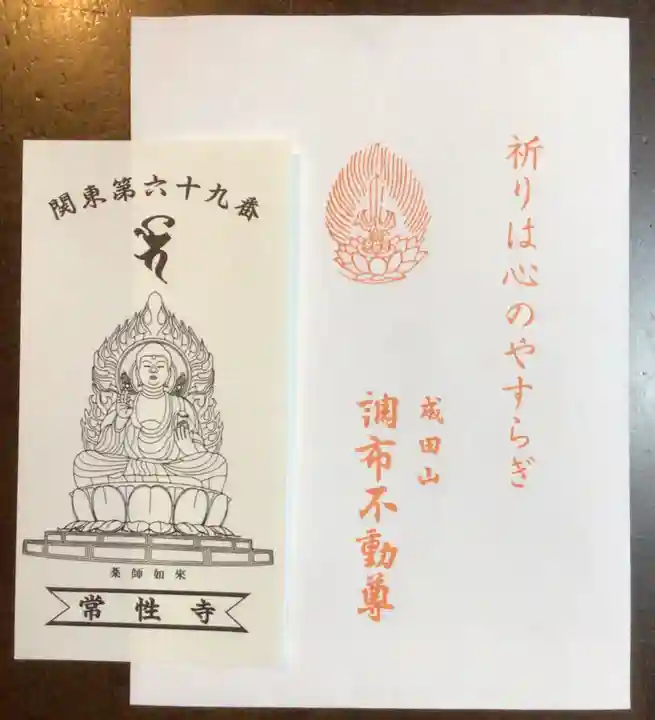 関東第六十九番
薬師如来
常性寺
祈りは心のやすらぎ
成田山
調布不動尊